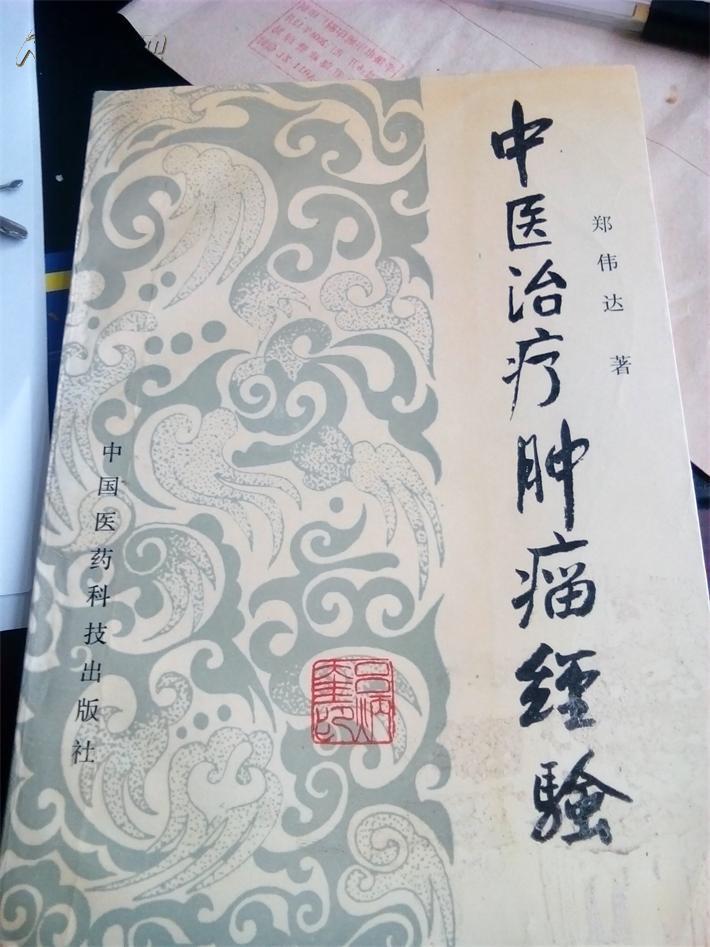 中医治疗肿瘤经验
郑伟达 著
中国医药科技出版社